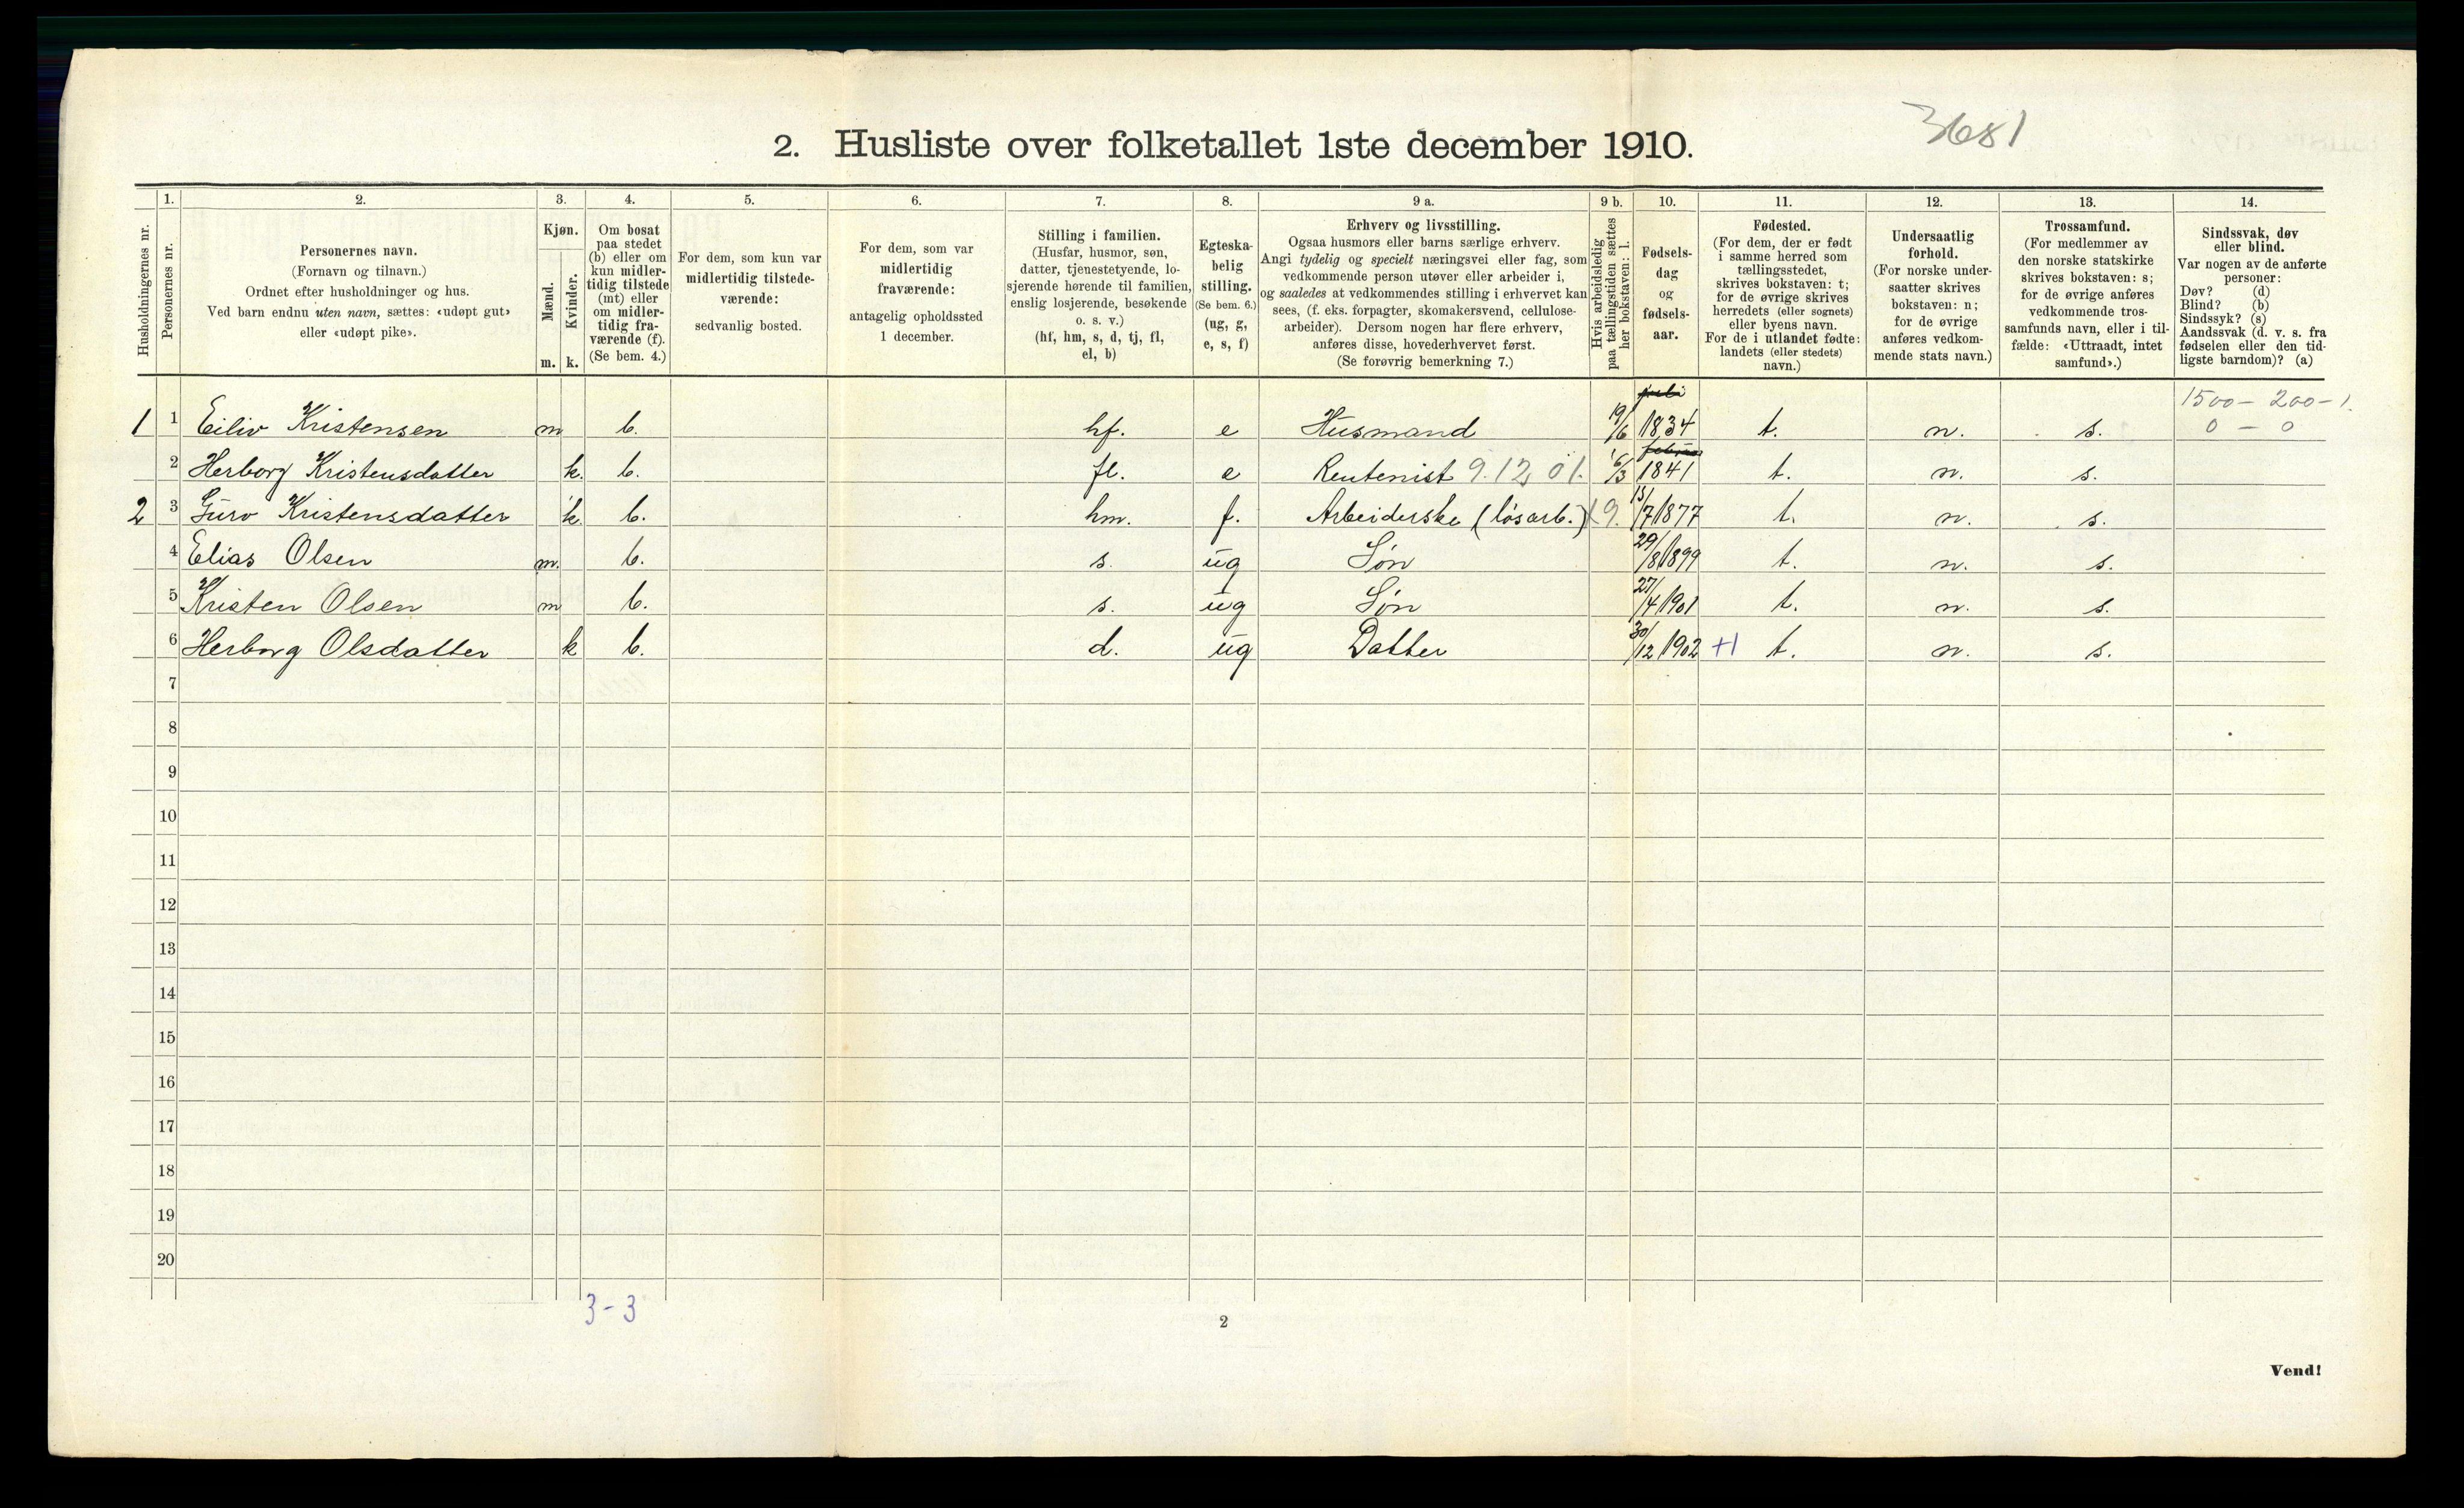 3681
2. Husliste over folketallet 1ste december 1910.
Husholdningernes nr.
1.
Personernes nr.
2.
Personernes navn.
(Fornavn og tilnavn.)
Ordnet efter husholdninger og hus.
Ved barn endnu uten navn, sættes: «udøpt gut»
eller «udøpt pike».
3.
Kjøn.
Mænd.
Kvinder.
m. k.
4.
Om bosat
paa stedet
(b) eller om
kun midler-
tidig tilstede
(mt) eller
om midler-
tidig fra-
værende (f).
(Se bem. 4.)
5.
For dem, som kun var
midlertidig tilstede-
værende:
sedvanlig bosted.
6.
For dem, som var
midlertidig
fraværende:
antagelig opholdssted
1 december.
7.
Stilling i familien.
(Husfar, husmor, søn,
datter, tjenestetyende, lo-
sjerende hørende til familien,
enslig losjerende, besøkende
o. s. v.)
(hf, hm, s, d, tj, fl,
el, b)
8.
Egteska-
belig
stilling.
(Se bem. 6.)
(ug, g,
e, s, f)
9 a.
Erhverv og livsstilling.
Ogsaa husmors eller barns særlige erhverv.
Angi tydelig og specielt næringsvei eller fag, som
vedkommende person utøver eller arbeider i,
og saaledes at vedkommendes stilling i erhvervet kan
sees, (f. eks. forpagter, skomakersvend, cellulose-
arbeider). Dersom nogen har flere erhverv,
anføres disse, hovederhvervet først.
(Se forøvrig bemerkning 7.)
9 b.
Hvis arbeidsledig
paa tællingstiden sættes
her bokstaven: l.
10.
Fødsels-
dag
og
fødsels-
aar.
11.
Fødested.
(For dem, der er født
i samme herred som
tællingsstedet,
skrives bokstaven: t;
for de øvrige skrives
herredets (eller sognets)
eller byens navn.
For de i utlandet fødte:
landets (eller stedets)
navn.)
12.
Undersaatlig
forhold.
(For norske under-
saatter skrives
bokstaven: n;
for de øvrige
anføres vedkom-
mende stats navn.)
13.
Trossamfund.
(For medlemmer av
den norske statskirke
skrives bokstaven: s;
for de øvrige anføres
vedkommende tros-
samfunds navn, eller i til-
fælde: «Uttraadt, intet
samfund».)
14.
Sindssvak, døv
eller blind.
Var nogen av de anførte
personer:
Døv? (d)
Blind? (b)
Sindssyk? (s)
Aandssvak (d. v. s. fra
fødselen eller den tid-
ligste barndom)? (a)
1500 - 200 - 1.
1 1 Eiliv Kristensen m b. hf. e Husmand 19/6 1834 t. n. s. 0 - 0
2 Herborg Kristensdatter k. b. fl. e Rentenist 9.12,01. 6/3 1841 t. n. s.
2 3 Guro Kristensdatter k b. hm. f. Arbeiderske (løsarb.) 9. 13/7 1877 t. n. s.
4 Elias Olsen m. b. s. ug Søn 29/8 1899 t. n. s.
5 Kristen Olsen m b. s. ug Søn 27/4 1901 t. n. s.
6 Herborg Olsdatter k b. d. ug Datter 30/12 1902 +1 t. n. s.
7
8
9
10
11
12
13
14
15
16
17
18
19
20
3-3
2
Vend!